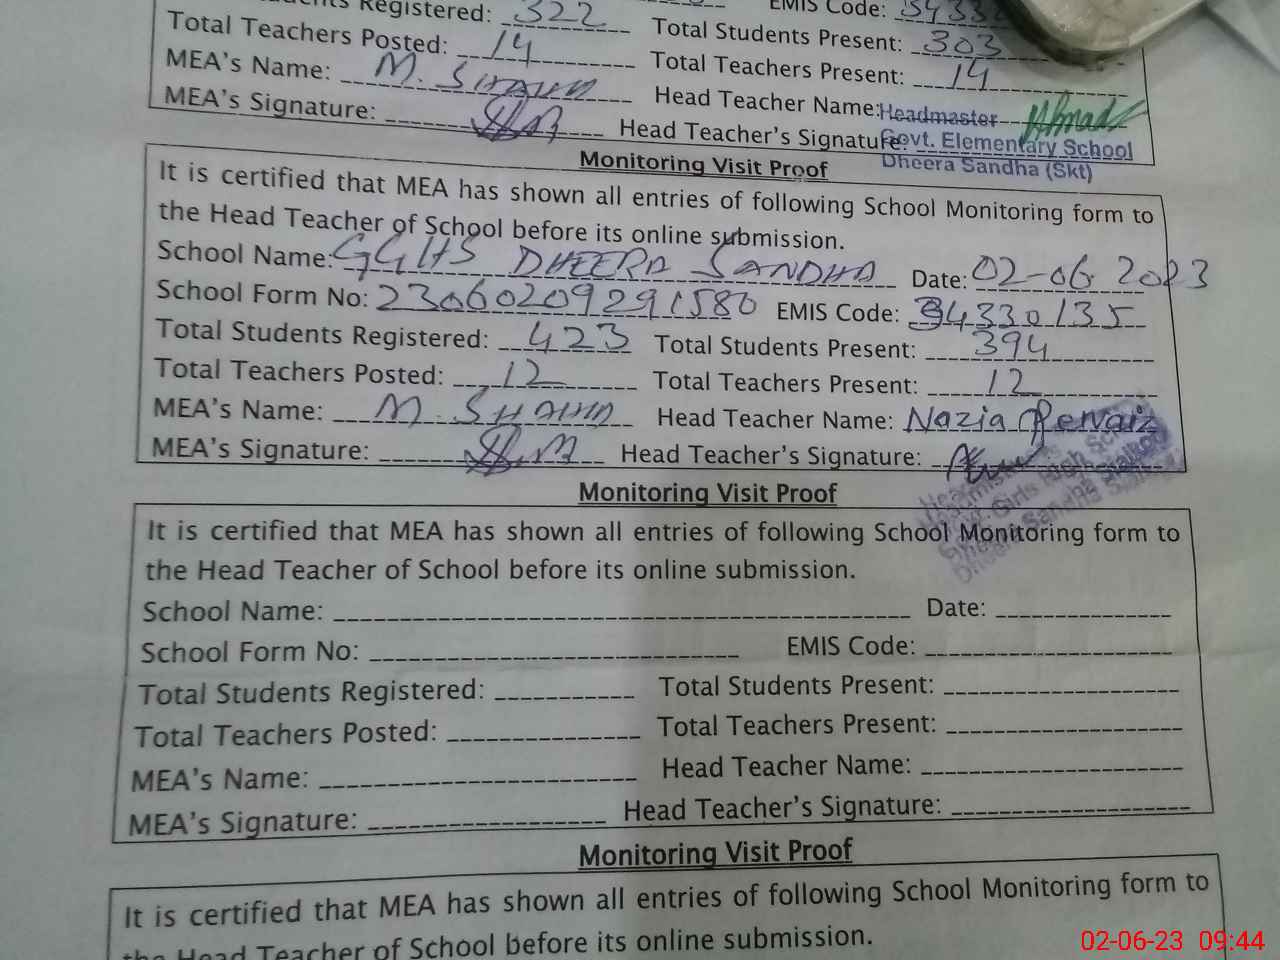 Students Registered: 322 EMIS Code: 34330
Total Teachers Posted: 14 Total Students Present: 303
MEA's Name: M. SHAHID Total Teachers Present: 14
MEA's Signature: Head Teacher Name: Headmaster
Head Teacher's Signature: Govt. Elementary School
Dheera Sandha (Skt)
Monitoring Visit Proof
It is certified that MEA has shown all entries of following School Monitoring form to
the Head Teacher of School before its online submission.
School Name: GGHS DHEERA SANDHA Date: 02-06-2023
School Form No: 23060209291580 EMIS Code: 34330135
Total Students Registered: 423 Total Students Present: 394
Total Teachers Posted: 12 Total Teachers Present: 12
MEA's Name: M. SHAHID Head Teacher Name: Nazia Pervaiz
MEA's Signature: Head Teacher's Signature:
Monitoring Visit Proof
It is certified that MEA has shown all entries of following School Monitoring form to
the Head Teacher of School before its online submission.
School Name: Date:
School Form No: EMIS Code:
Total Students Registered: Total Students Present:
Total Teachers Posted: Total Teachers Present:
MEA's Name: Head Teacher Name:
MEA's Signature: Head Teacher's Signature:
Monitoring Visit Proof
It is certified that MEA has shown all entries of following School Monitoring form to
the Head Teacher of School before its online submission.
02-06-23 09:44